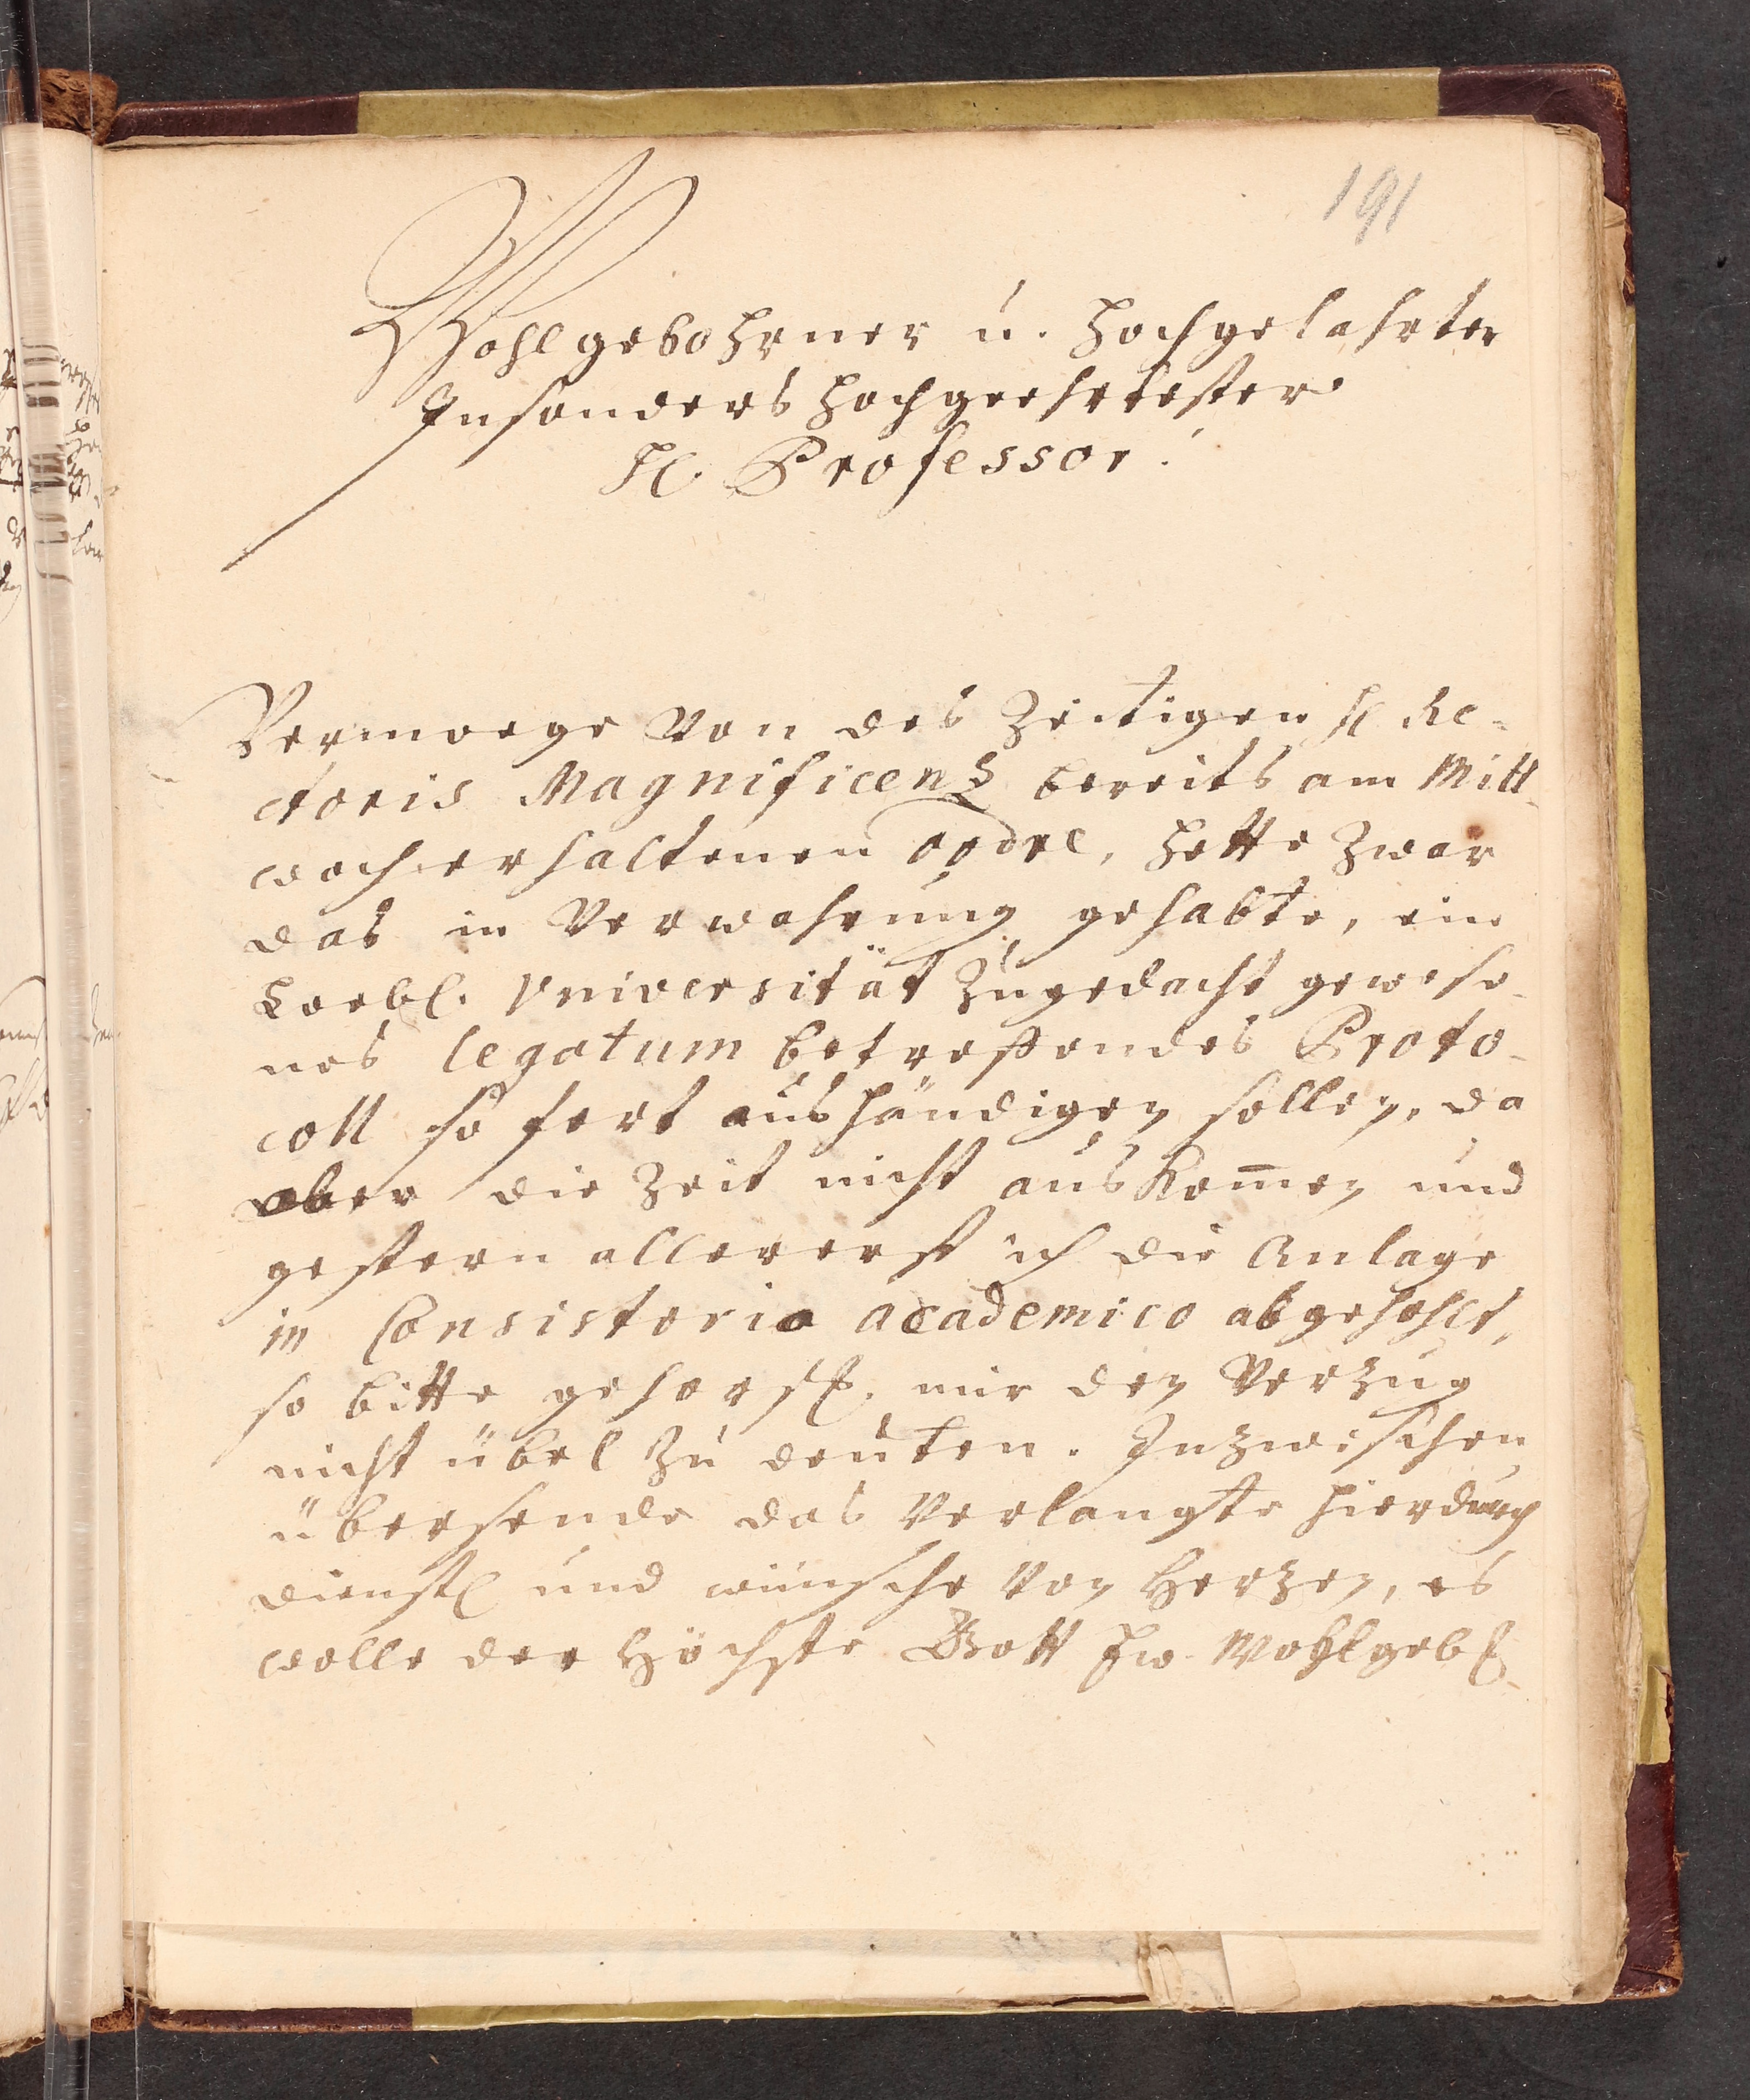 191
Wohlgebohrner u. Hochgelahrter
Insonders Hochgeehrtester
H. Professor!
Vermoege von des zeitigen H Re-
ctoris Magnificenz bereits am Mitt-
woch erhaltenen ordre, hette zwar
das in Verwahrung gehabte, ein
Loebl. Vniversität zugedacht gewese-
nes legatum betreffendes Proto-
coll so fort aushändigen sollen, da
aber die Zeit nicht auskom̄en und
gestern allererst ich die Anlage
in Consistorio academico abgehohlt,
so bitte gehors. mir den Verzug
nicht übel zu deuten. Inzwischen
übersende das Verlangte hierdurch
dienstl und wünsche von Herzen, es
wolle der Höchste Gott Ew. Wohlgeb.